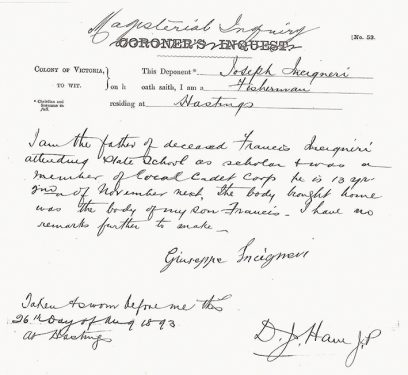 Magisterial Inquiry
CORONER'S INQUEST. [No. 53.
COLONY OF VICTORIA, This Deponent * Joseph Incigneri
TO WIT. on h oath saith, I am a Fisherman
* Christian and Surname in full. residing at Hastings
I am the father of deceased Francis Incigneri
attending State School as scholar & was a
member of Local Cadet Corp he is 13 yrs
of November next. The body brought home
was the body of my son Francis. I have no
remarks further to make -
Giuseppe Incigneri
Taken & sworn before me this
26th Day of Aug 1893
at Hastings
D. J. J.P